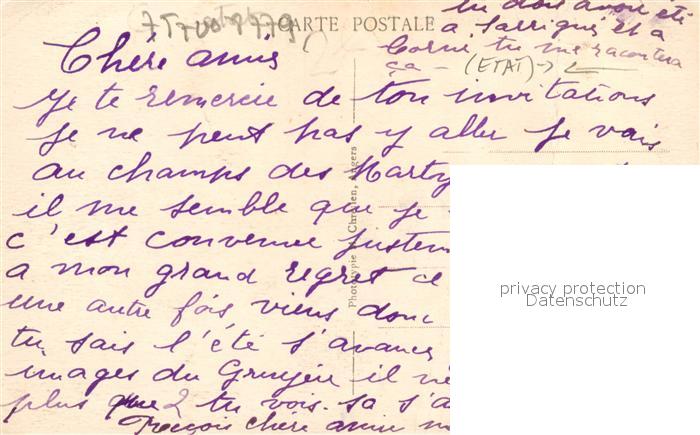 CARTE POSTALE
tu dois avoir été
a Sarrigné et a
Corné, tu me racontera
ça — (ETAT)
Chère amie
Je te remercie de ton invitations
je ne peut pas y aller je vais
au champs des Marty
il me semble que je
c'est convenue justem
a mon grand regret ce
une autre fois viens donc
tu sais l'été s'avance
images du Gruyère il ne
plus que 2 tu vois sa s'a
chère amie
Phototypie Chrétien, Angers
privacy protection
Datenschutz